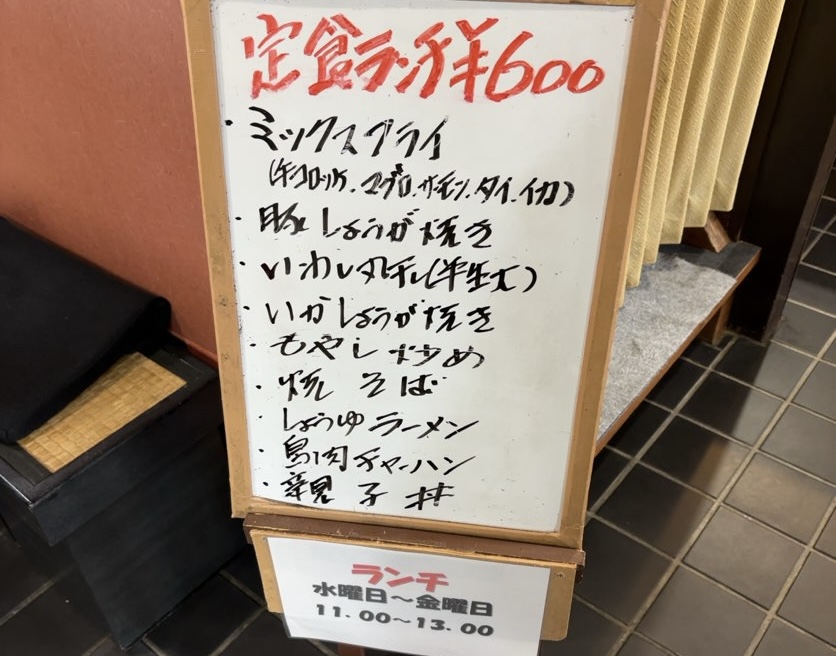 定食ランチ¥600
・ミックスフライ
(牛コロッケ.マグロ.サーモン.タイ.イカ)
・豚しょうが焼き
・いわし丸干し(半生大)
・いかしょうが焼き
・もやし炒め
・焼そば
・しょうゆラーメン
・鳥肉チャーハン
・親子丼
ランチ
水曜日～金曜日
11.00～13.00